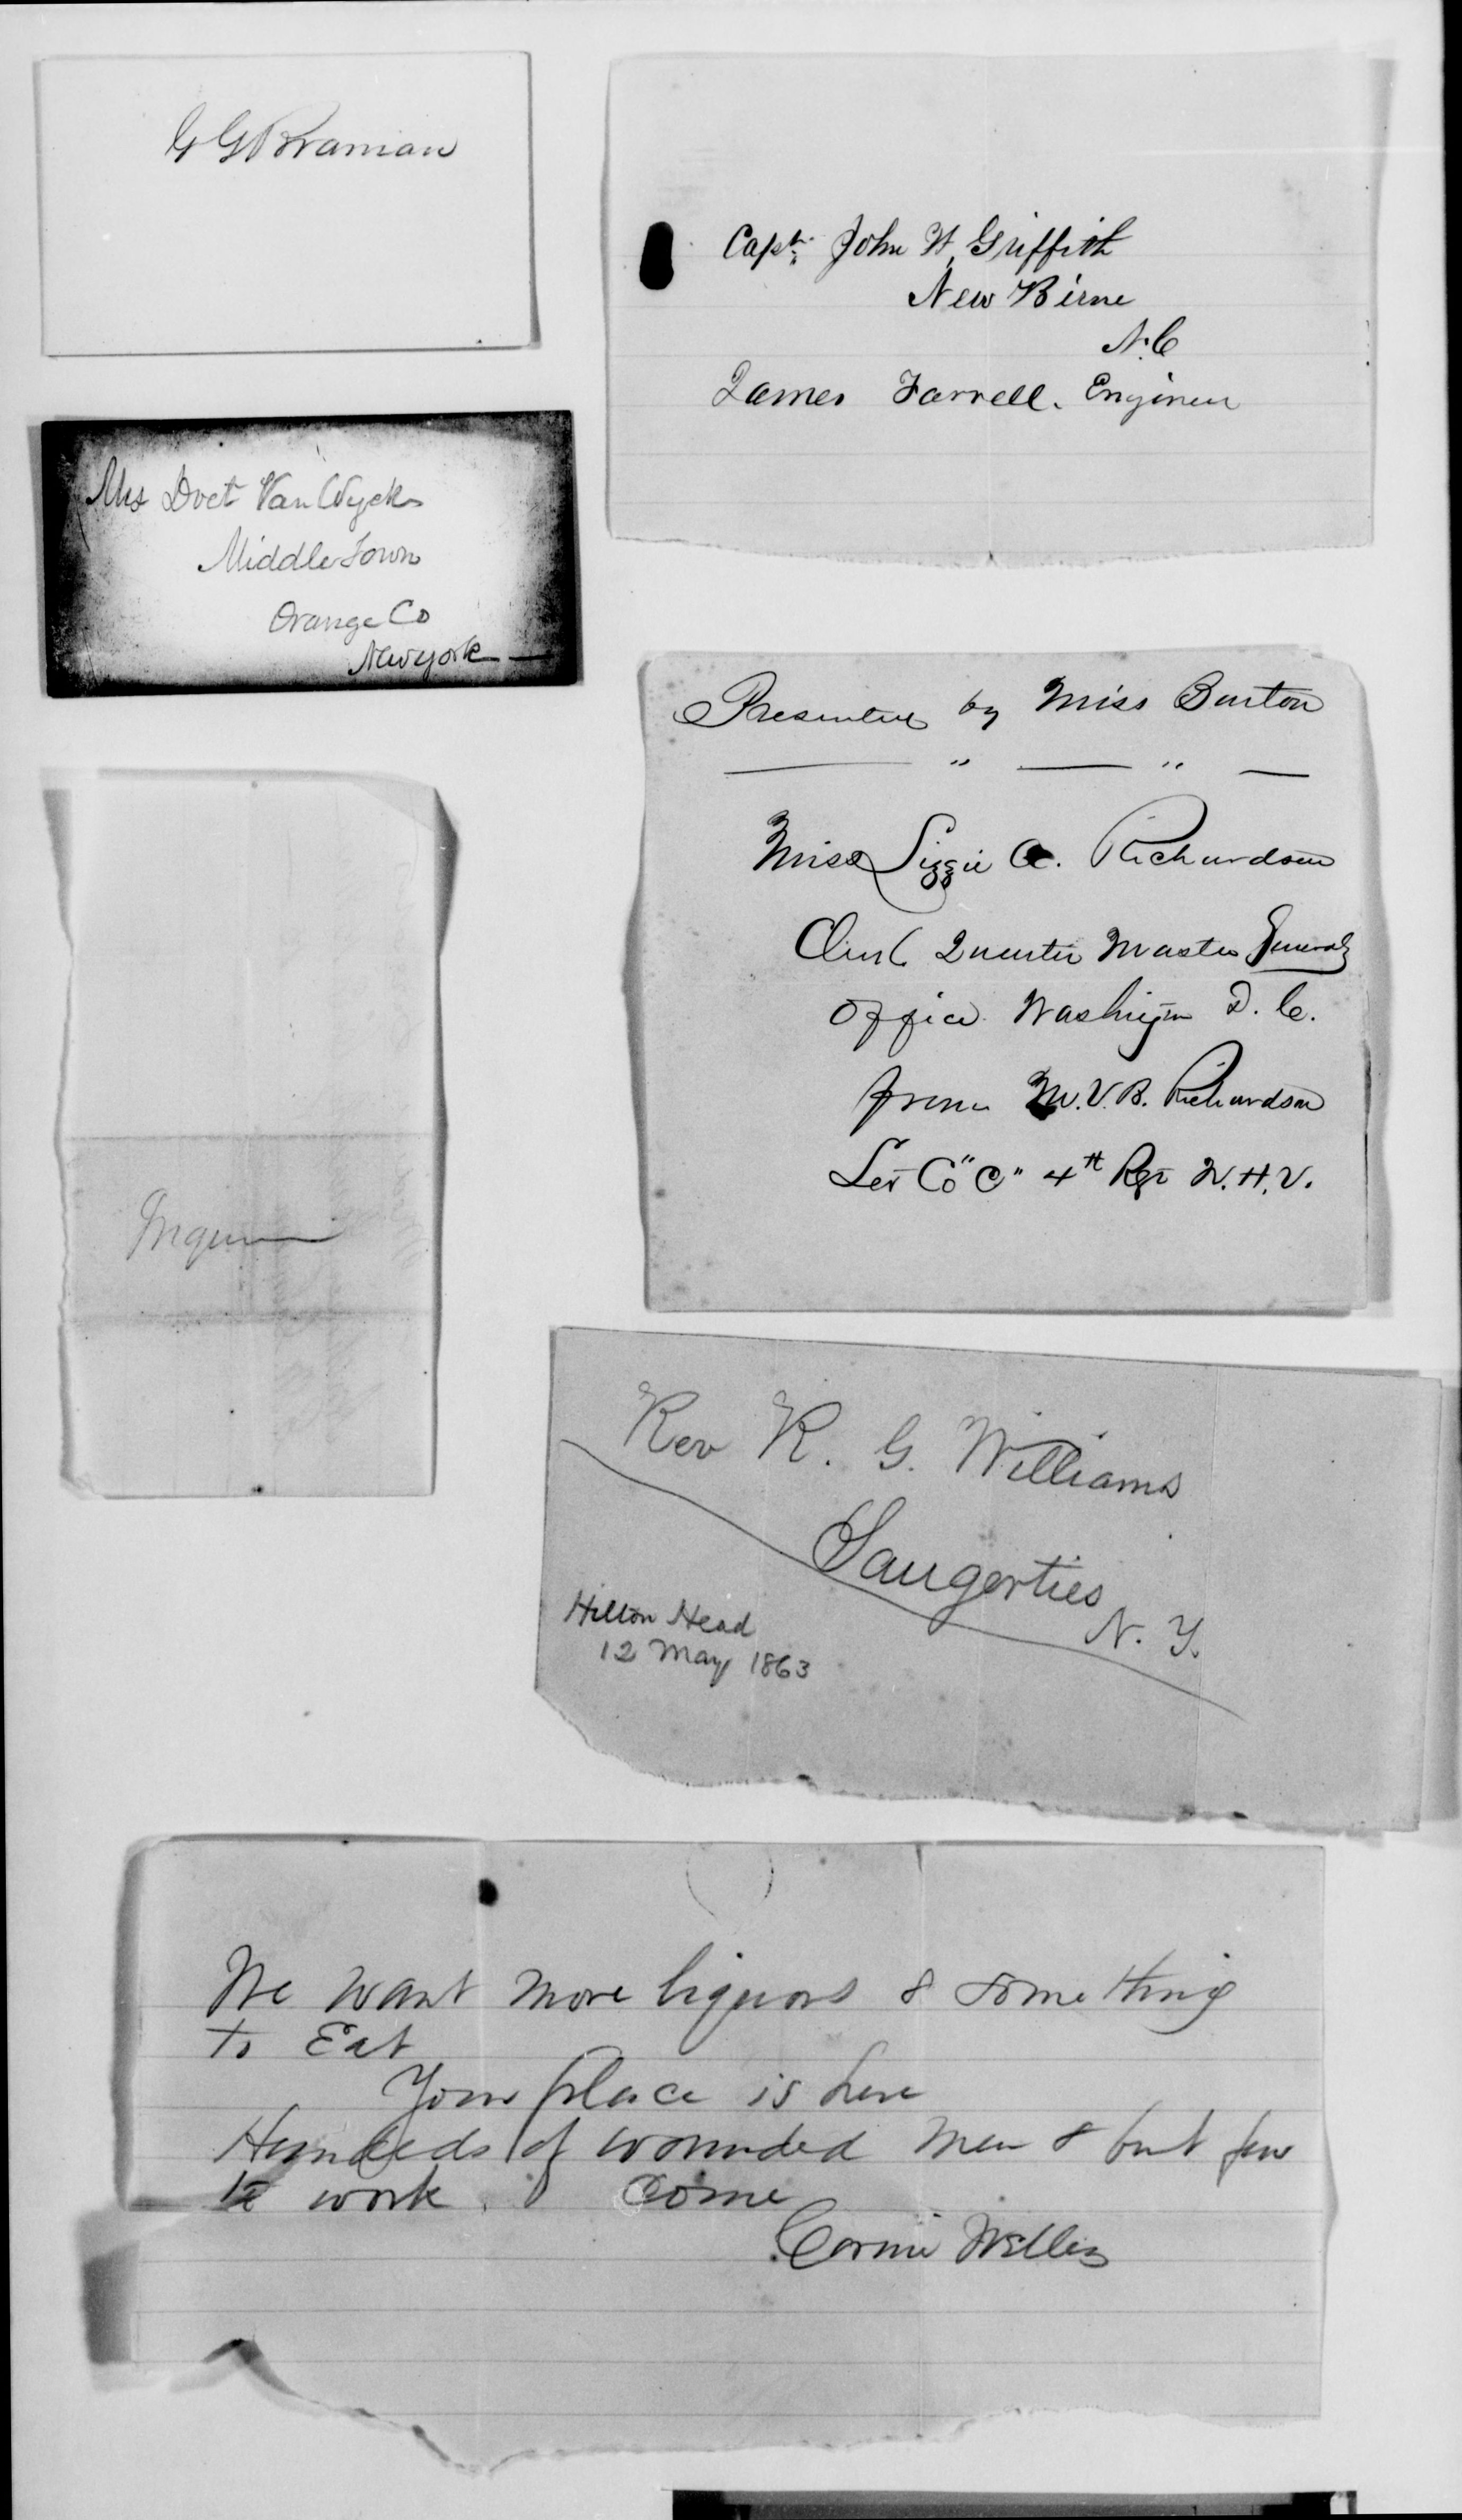 G G Braman
Capt. John H. Griffith
New Birne
N.C
James Farrell. Engineer
Mrs Doct Van Wyck
Middletown
Orange Co
New york —
Presented by Miss Burton
— " — " —
Miss Lizzie A. Richardson
Clerk Quarter Master Generals
Office Washington D.C.
from M.V.B. Richardson
Co "C" 4th Rgt N.H.V.
Rev R. G. Williams
Saugerties
N.Y.
Hilton Head
12 May 1863
We want more liquors & something
to Eat
Your place is here
Hundreds of wounded men & but few
to work. Come
Willey